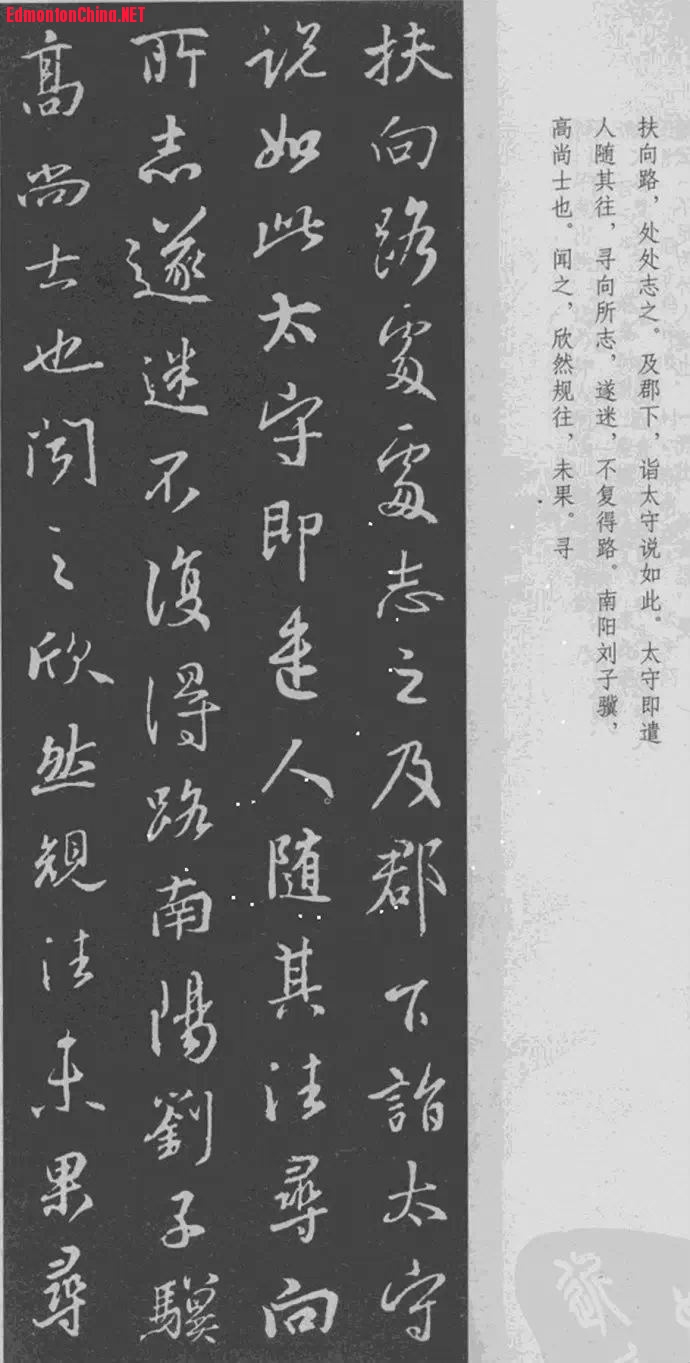 EdmontonChina.NET
扶向路處處志之及郡下詣太守
说如此太守即遣人随其往尋向
所志遂迷不復得路南陽劉子驥
高尚士也闻之欣然規往未果尋
扶向路，处处志之。及郡下，诣太守说如此。太守即遣
人随其往，寻向所志，遂迷，不复得路。南阳刘子骥，
高尚士也。闻之，欣然规往，未果。寻